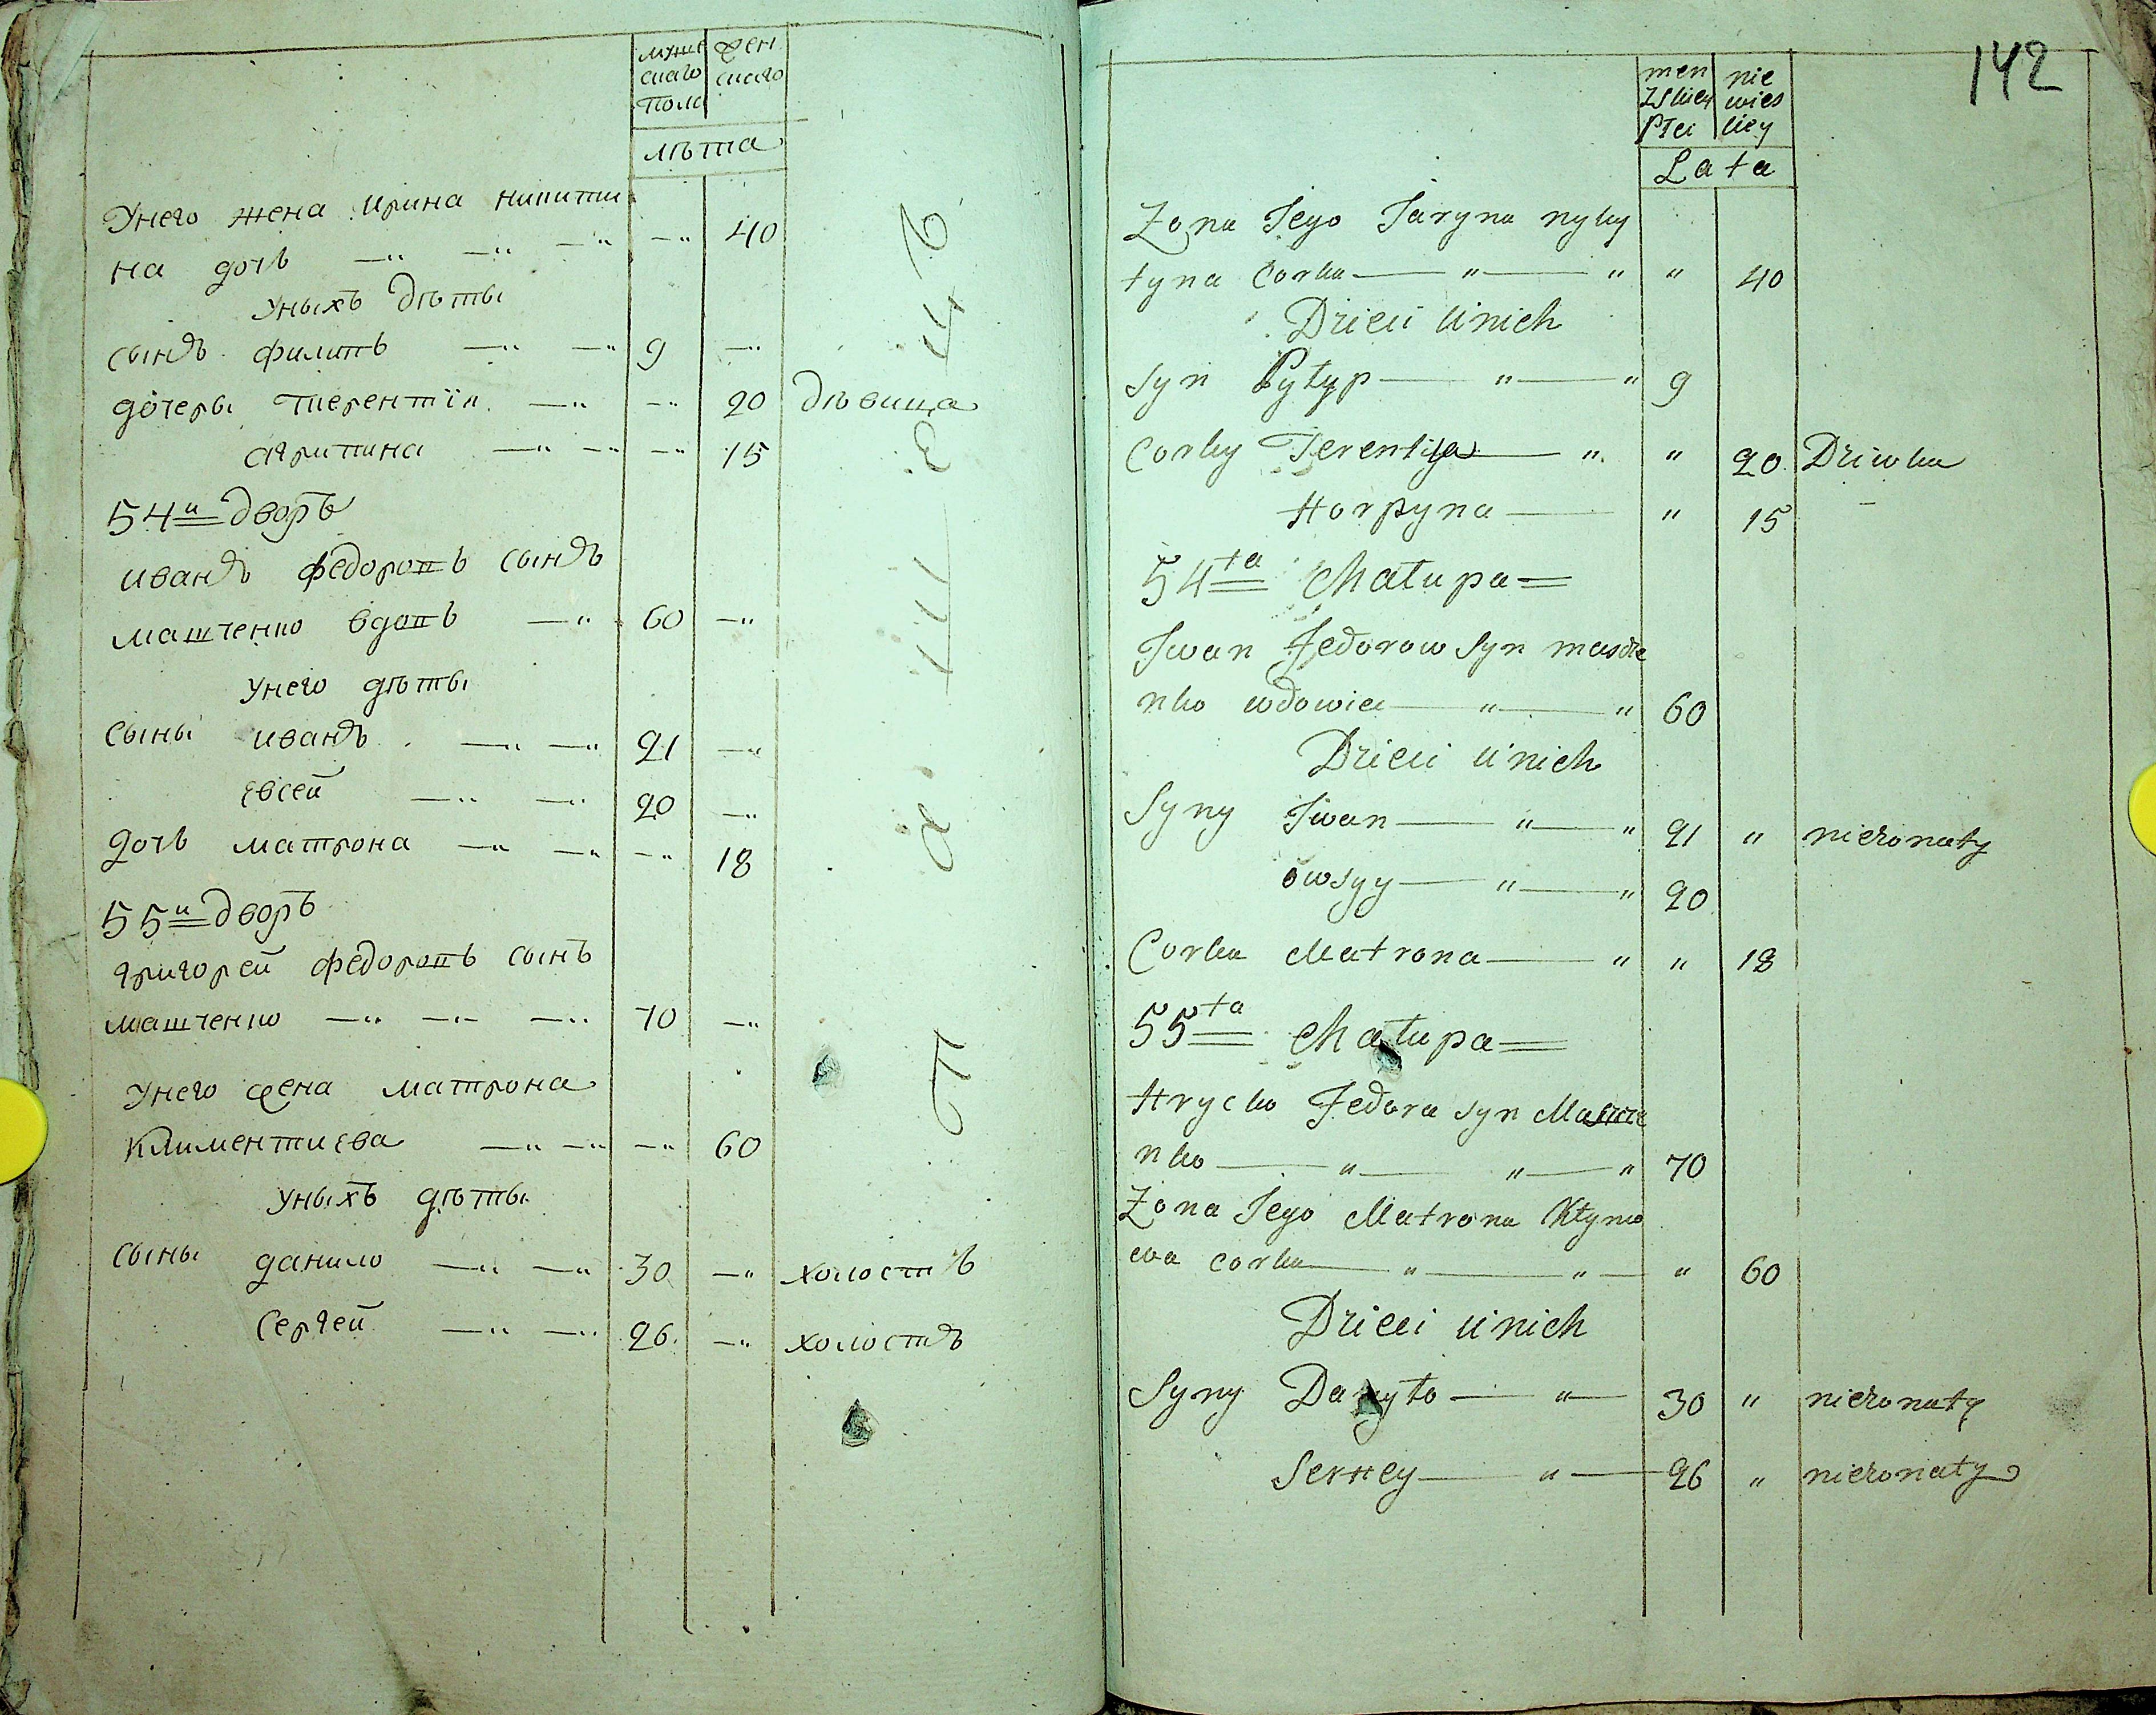 муже жен
скаго скаго
пола
лѣта
Унего жена Ирина никити
на дочь —„ —„ —„ —„ 40
Уныхъ дѣты
сынъ филипъ —„ —„ 9 —„
дочеры терентїя —„ —„ 20 дѣвица
агрипина —„ —„ —„ 15
54й дворъ
иванъ федоровъ сынъ
машченко вдовъ —„ 60 —„
унего дѣты
сыны иванъ —„ —„ 21 —„
евсей —„ —„ 20 —„
дочь матрона —„ —„ —„ 18
55й дворъ
григорей федоровъ сынъ
машченко —„ —„ —„ 70 —„
Унего жена матрона
климентиева —„ —„ —„ 60
уныхъ дѣты
сыны данило —„ —„ 30 —„ холостъ
Сергей —„ —„ 26 —„ холостъ
142
men nie
zskiey wies
Płci kiey
Lata
Zona Jego Jaryna nyky
tyna Corka — „ — „ „ 40
Dzieci u nich
Syn Pyłyp — „ — „ 9
Corky Terentija — „ „ 20 Dziwka
Horpyna — „ 15
54ta Chałupa =
Iwan Fedorow Syn mascze
nko wdowiec — „ — „ 60
Dzieci u nich
Syny Iwan — „ — „ 21 „ niezonaty
owsyy — „ — „ 20
Corka Matrona — „ „ 18
55ta Chałupa =
Hrycko Fedora syn Mascze
nko — „ — „ — „ 70
Zona Jego Matrona Kłymo
wa corka — „ — „ — „ 60
Dzieci u nich
Syny Danyło — „ — 30 „ niezonaty
Serhey — „ — 26 „ niezonaty